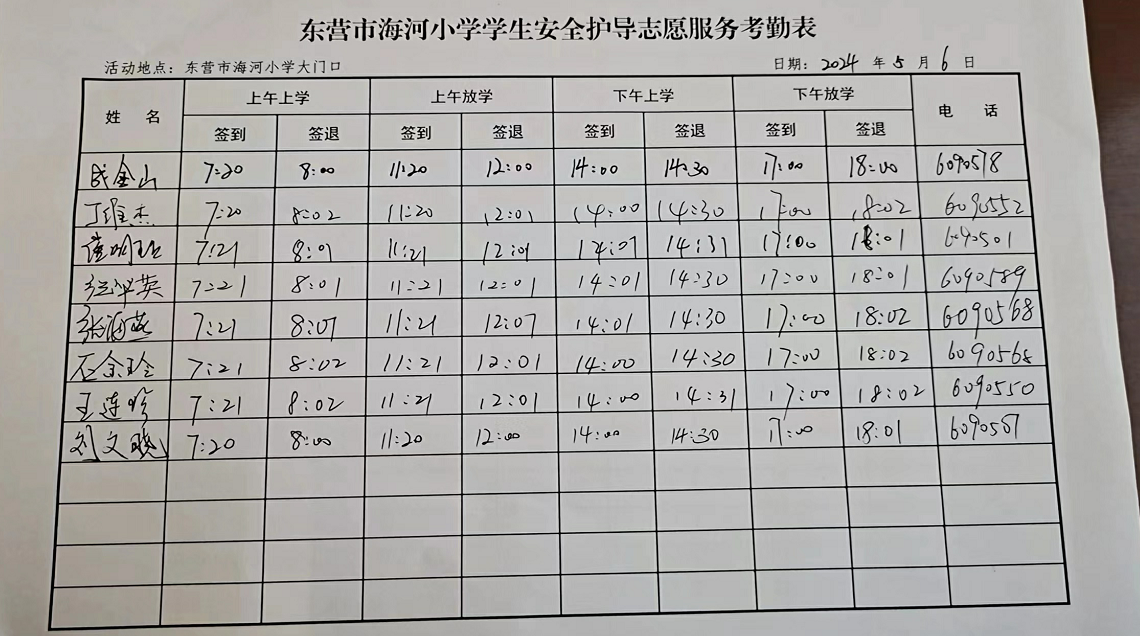 东营市海河小学学生安全护导志愿服务考勤表
活动地点：东营市海河小学大门口 日期：2024 年 5 月 6 日
姓 名 上午上学 上午放学 下午上学 下午放学 电 话
签到 签退 签到 签退 签到 签退 签到 签退
成金山 7:20 8:00 11:20 12:00 14:00 14:30 17:00 18:00 6090578
丁维杰 7:20 8:02 11:20 12:01 14:00 14:30 17:00 18:02 6090552
7:21 8:01 11:21 12:01 14:01 14:31 17:00 18:01 6090501
7:21 8:01 11:21 12:01 14:01 14:30 17:00 18:01 6090589
张海燕 7:21 8:01 11:21 12:01 14:01 14:30 17:00 18:02 6090568
石余玲 7:21 8:02 11:21 12:01 14:00 14:30 17:00 18:02 6090568
王连珍 7:21 8:02 11:21 12:01 14:00 14:31 17:00 18:02 6090550
刘文晓 7:20 8:00 11:20 12:00 14:00 14:30 17:00 18:01 6090587